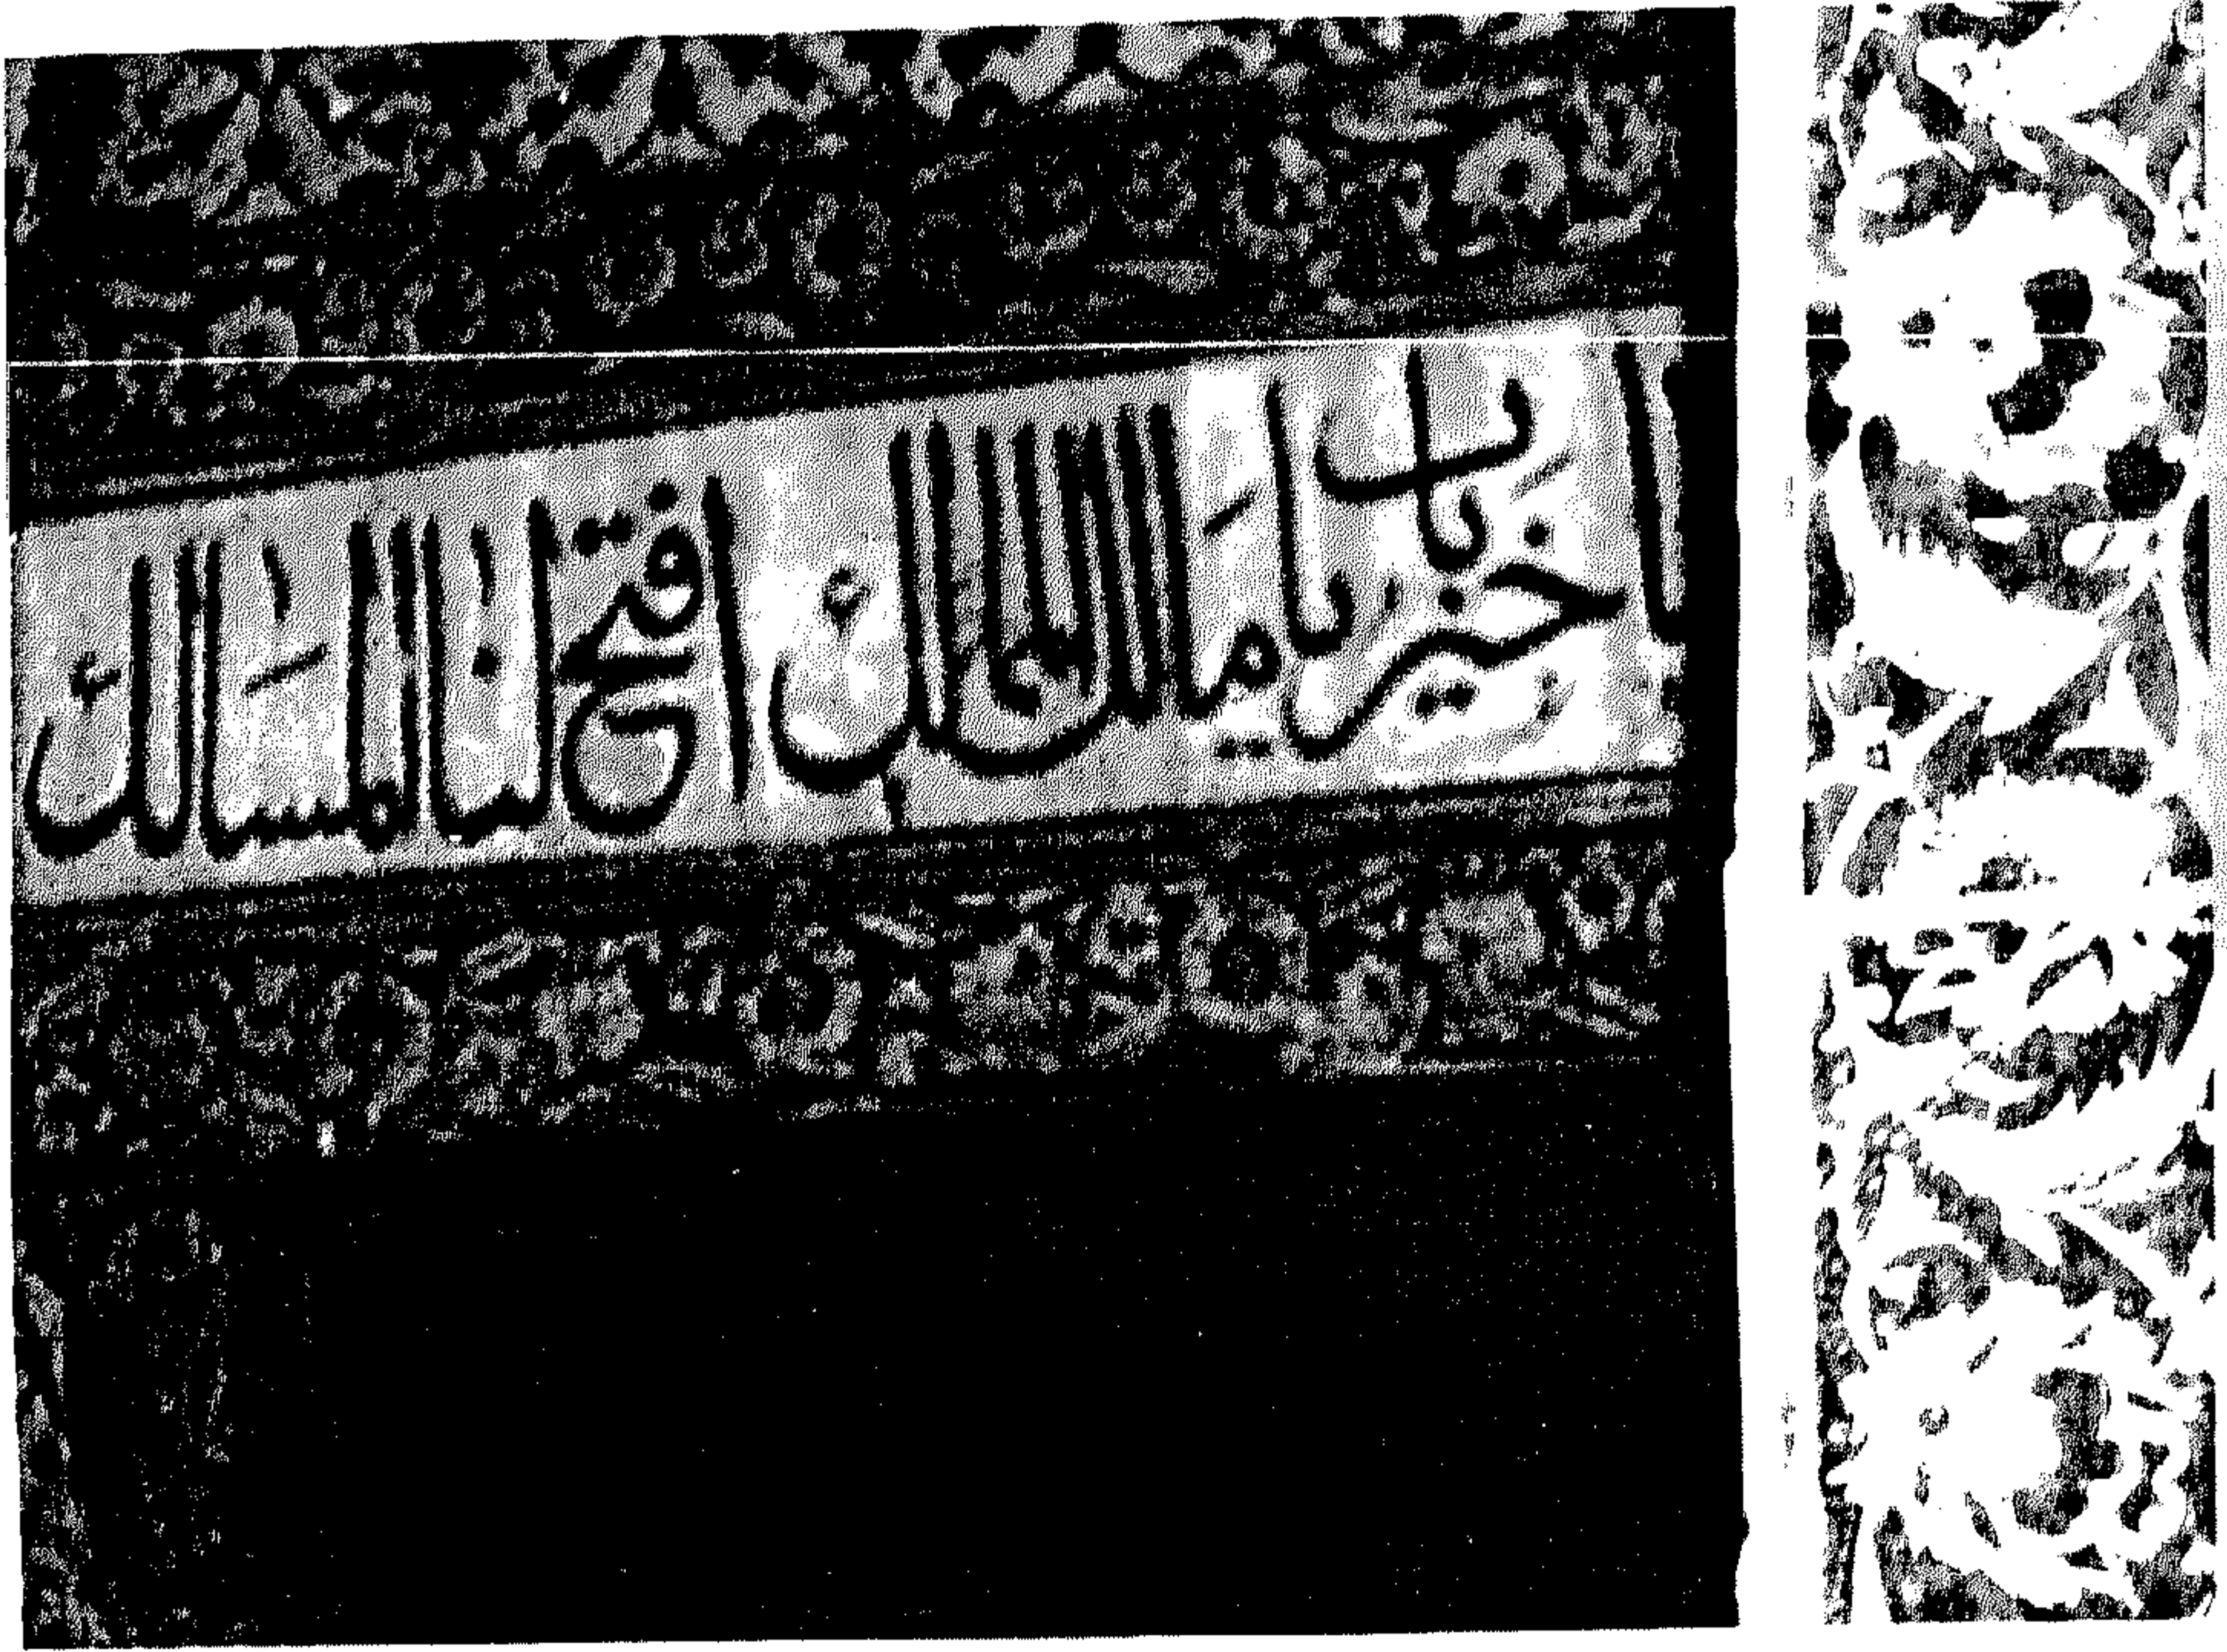 يا مالك الممالك افتح لنا المسالك